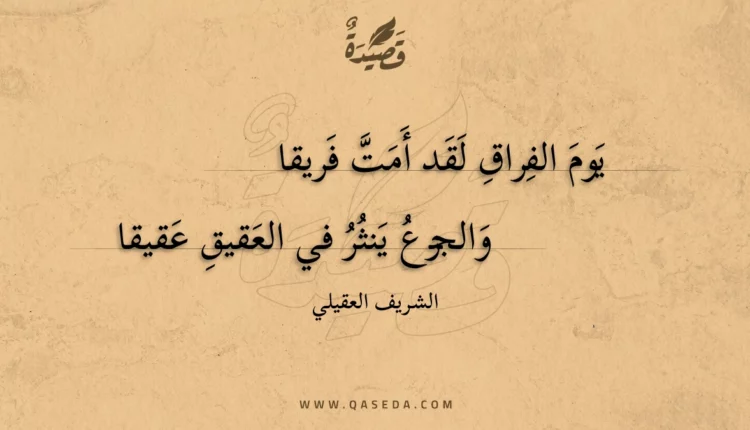 قَصِيْدَةٌ
يَومَ الفِراقِ لَقَد أَمَتَّ فَريقا
وَالجِزعُ يَنثُرُ في العَقيقِ عَقيقا
الشريف العقيلي
WWW.QASEDA.COM